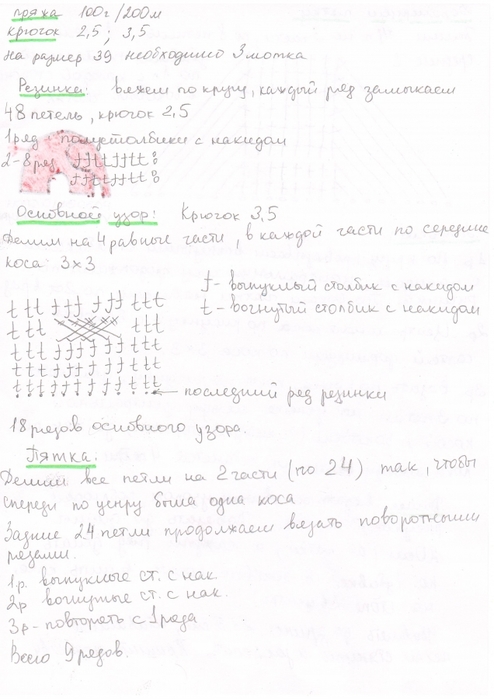 пряжа 100г/200м
крючок 2,5; 3,5
на размер 39 необходимо 3 мотка
Резинка: вяжем по кругу, каждый ряд замыкаем
48 петель, крючок 2,5
1 ряд полустолбики с накидом
2-8 ряд
Основной узор: Крючок 3,5
Делим на 4 равные части, в каждой части по середине
коса 3×3
ʃ - выпуклый столбик с накидом
t - вогнутый столбик с накидом
последний ряд резинки
18 рядов основного узора.
Пятка:
Делим все петли на 2 части (по 24) так, чтобы
спереди по центру была одна коса
Задние 24 петли продолжаем вязать поворотными
рядами.
1р. выпуклые ст. с нак.
2р вогнутые ст. с нак.
3р - повторять с 1 ряда
Всего 9 рядов.